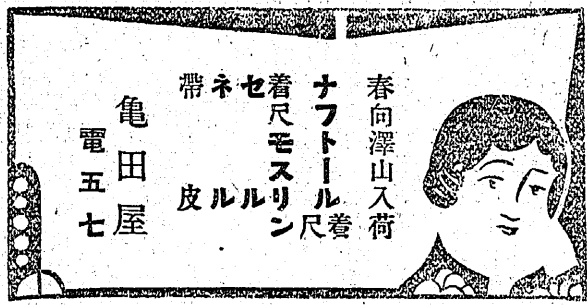 春向澤山入荷
ナフトール着尺
着尺モスリン
セル
ネル
帶皮
亀田屋
電五七